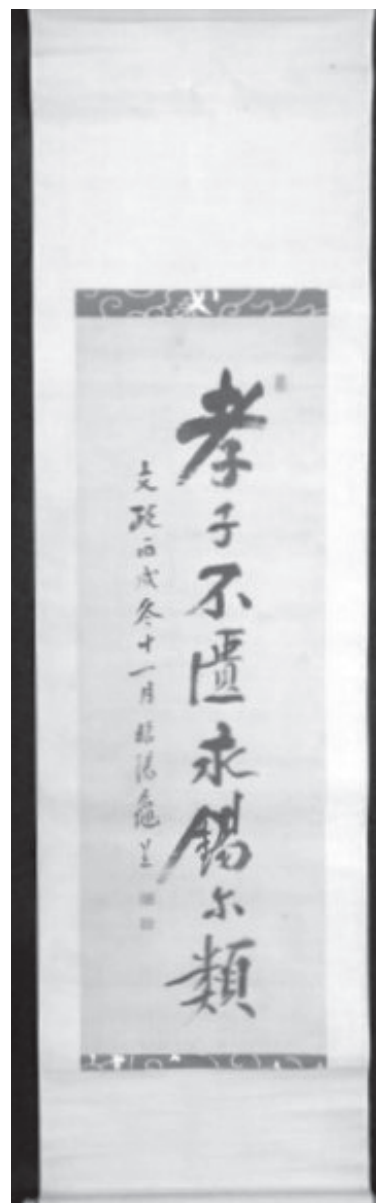 孝子不匱永錫尓類
文政丙戌冬十一月